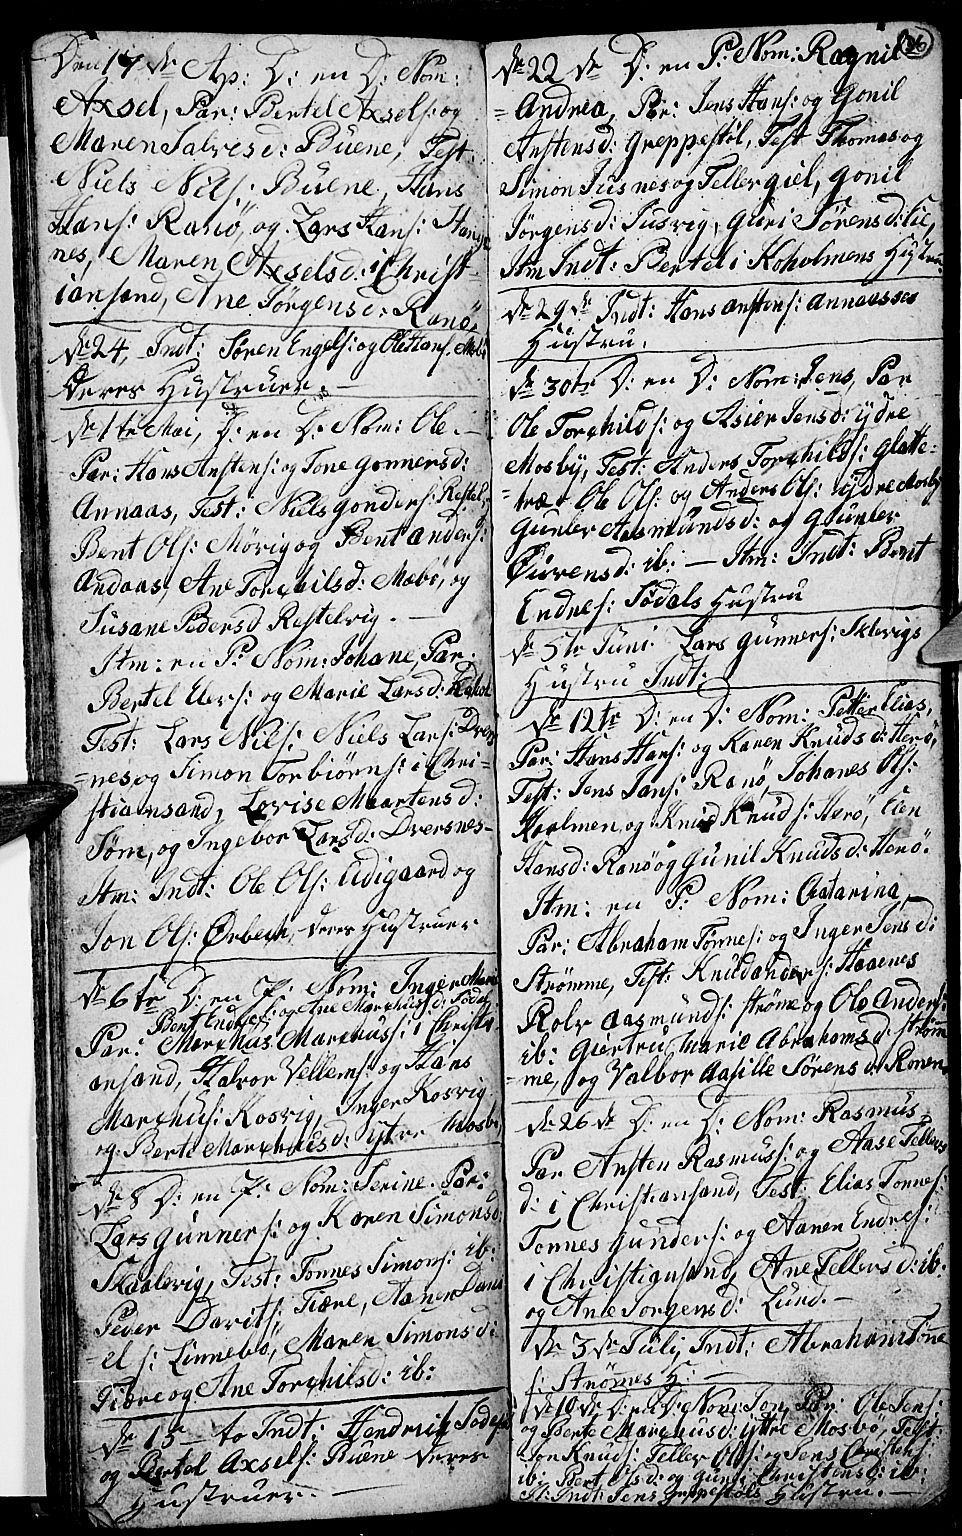 Den 17 de Ap: D: en D: Nom:
Axsel, Par: Bertel Axsels: og
Maren Salvesd: Buene, Test:
Niels Nils: Buene, Hans
Hans: Ranö, og Lars Hans: Hams
nes, Maren Axselsd: i Christ-
iansand, Ane Jörgensd: Ranö,
de 24 Indt: Sören Engels: og Ole Hans: Mebö
Deres Hustruer. —
de 1te Mai, D: en D: Nom: Ole: —
Par: Hans Anstens: og Tone Gonnersd:
Annaas, Test: Niels Gonders: Restel,
Bent Ols: Mörig og Bent Anders:
Andaas, Ane Torchilsd: Mæbö, og
Susane Pedersd Restelvig. —
Itm: en P: Nom: Johane, Par:
Bertel Elers: og Marie Larsd:
Test: Lars Nils: Niels Lars: Dvers
=nes og Simon Torbiörns: i Chri-
stiansand, Lovise Maartensd:
Söm, og Ingebor Larsd: Dversnes-
Itm: Indt: Ole Ols: Udigaard og
Jon Ols: Örbech, deres Hustruer.
de 6te D: en P: Nom: Inger Marie
Bent Endres: og Ane Marchusd: Södal,
Par: Marchus Marchus: i Christi-
ansand, Halvor Vellems: og Hans
Marchus: Kosvig, Inger Kosvig
og Berte Marchusd: ytre Mosby
de 8 D: en P: Nom: Serine. Par:
Lars Gunners: og Karen Simonsd:
Skaalevig, Test: Tonnes Simons: ib:
Peder Davits: Tiære, Aanen Dani
=els: Linnebö, Maren Simonsd:
Tiære og Ane Torchilsd: ib:
de 15 — to Indt: Hendrich Södals
og Bertel Axsels: Buene deres
Hustruer. —
26
de 22 de D: en P: Nom: Ragnil
=Andrea, Par: Jens Hans: og Gonil
Anstensd: Greppestöl, Test Thomas og
Simon Jusnes og Tellef giel, Gonil
Jörgensd: Jusvig, Guri Sörensd: Lie,
Itm Indt: Bertel i Koholmens Hustru.
de 29 de Indt: Hans Anstens: Annaasses
Hustru.
de 30te D: en D: Nom: Jens, Par
Ole Torchilds: og Asier Jensd: ydre
Mosby, Test: Anders Torchilds: Glatte-
=træ Ole Ols: og Anders Ols: ydre Mosby
Gunler Aasmundsd: og Gunler
Övrensd: ib: — Itm: Indt: Berit
Endres: Södals Hustru
de 5te Juni Lars Gunners: Sklevigs
Hustru Indt:
de 12te D: en D: Nom: Petter Elias,
Par: Hans Hans: og Karen Knudsd: Herö,
Test: Jens Jans: Ranö, Johanes Ols:
Haalmen, og Knud Knuds: Herö, Elen
Hansd: Ranö og Gunil Knudsd: Herö.
Itm: en P: Nom: Chatarina
Par: Abraham Tönnes: og Inger Jensd:
Strömme, Test: Knud Anders: Haanes
Rolv Aasmunds: Ströme og Ole Anders:
ib: Giertru Marie Abrahamsd: Ström
=me, og Valbor Aasille Sörensd: Ronen
de 26 de D: en D: Nom: Rasmus-
Par Ansten Rasmuss: og Aase Tellefs
d: i Christiansand, Test: Elias Tonnes:
Tonnes Gunders: og Aanen Endres:
i Christiansand, Ane Tellefsd: ib:
og Ane Jorgensd: Lund. —
de 3 de Julj Indt: Abraham Töne
s: Strömes H: —
de 10 de D: en D: Nom: Jon, Par: Ole Jens:
og Berte Marchusd: ijttre Mosbö, Test:
Jon Knuds: Tellef Ols: og Jens Christens:
ib: Bert Olsd: og Guni Christensd: ib:
It: Indt: Jens Greppestöls Hustru. —